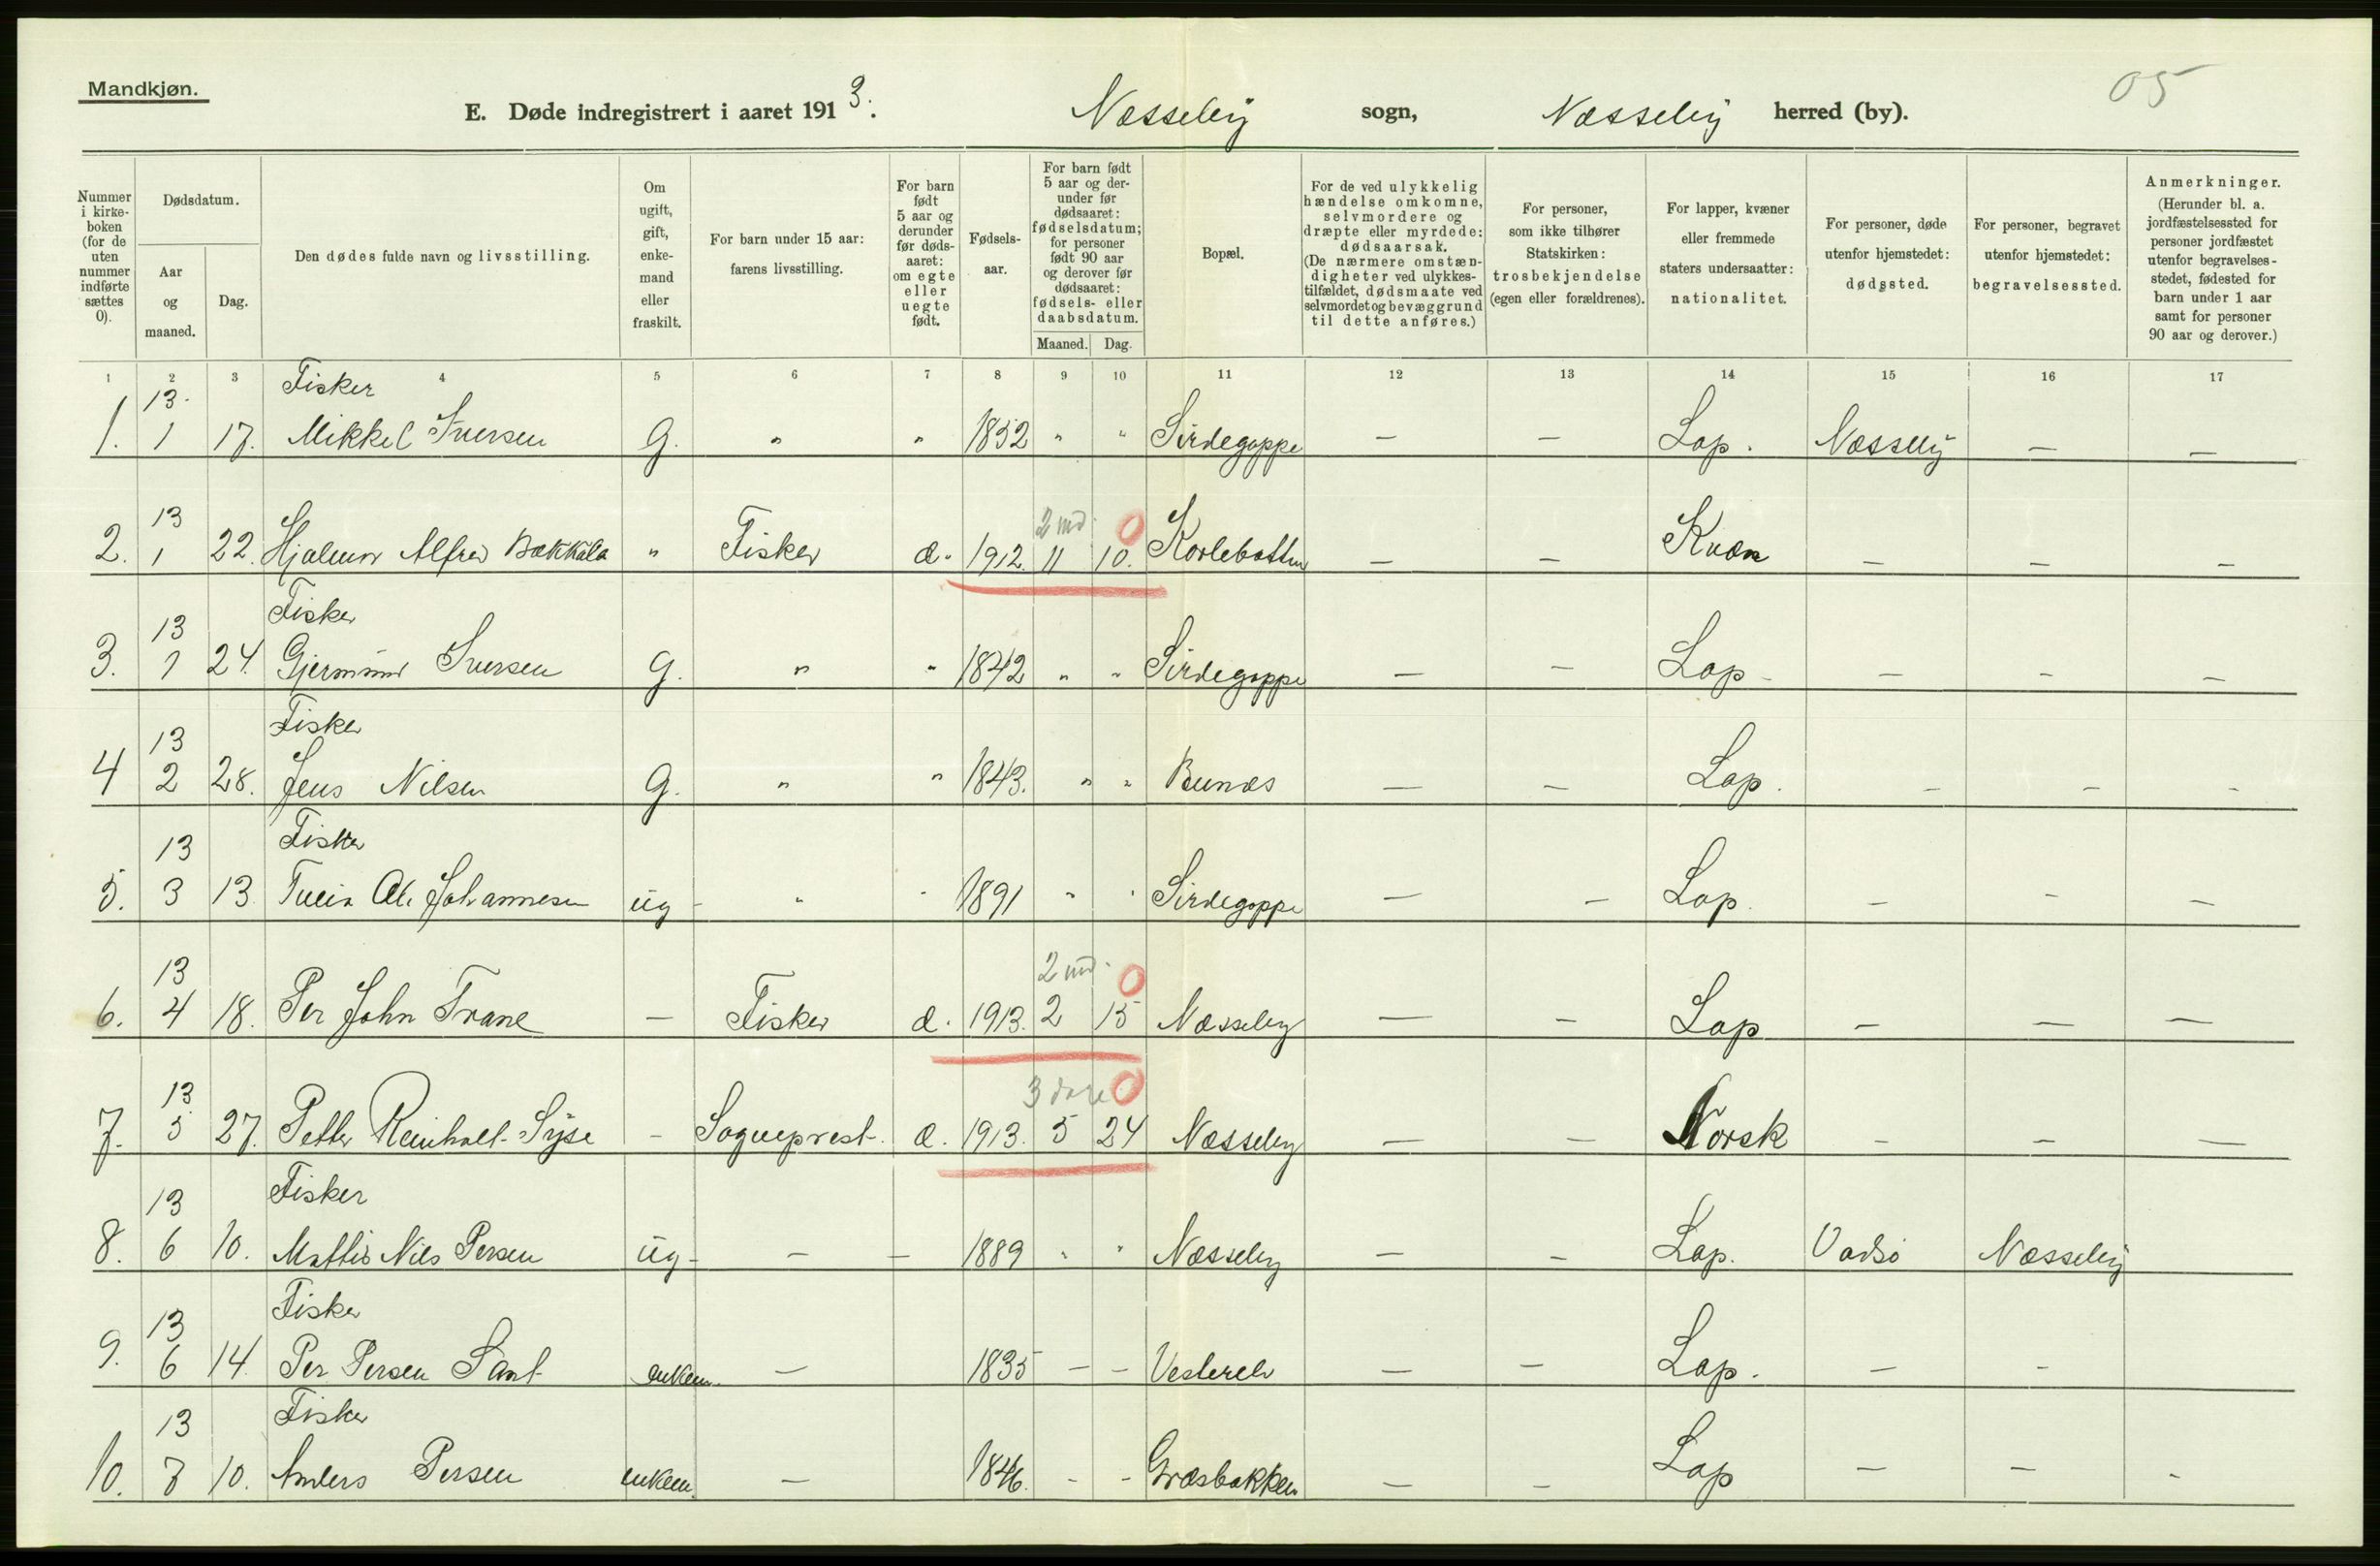 Mandkjøn.
05
E. Døde indregistrert i aaret 1913. Næsseby sogn, Næsseby herred (by).
Nummer i kirke-boken (for de uten nummer indførte sættes 0).
Dødsdatum.
Aar og maaned.
Dag.
Den dødes fulde navn og livsstilling.
Om ugift, gift, enke-mand eller fraskilt.
For barn under 15 aar: farens livsstilling.
For barn født 5 aar og derunder før døds-aaret: om egte eller uegte født.
Fødsels-aar.
For barn født 5 aar og der-under før dødsaaret: fødselsdatum; for personer født 90 aar og derover før dødsaaret: fødsels- eller daabsdatum.
Maaned. Dag.
Bopæl.
For de ved ulykkelig hændelse omkomne, selvmordere og dræpte eller myrdede: dødsaarsak. (De nærmere omstæn-digheter ved ulykkes-tilfældet, dødsmaate ved selvmordet og bevæggrund til dette anføres.)
For personer, som ikke tilhører Statskirken: trosbekjendelse (egen eller forældrenes).
For lapper, kvæner eller fremmede staters undersaatter: nationalitet.
For personer, døde utenfor hjemstedet: dødssted.
For personer, begravet utenfor hjemstedet: begravelsessted.
Anmerkninger. (Herunder bl. a. jordfæstelsessted for personer jordfæstet utenfor begravelses-stedet, fødested for barn under 1 aar samt for personer 90 aar og derover.)
1 2 3 4 5 6 7 8 9 10 11 12 13 14 15 16 17
13. Fisker
1. 1 17. Mikkel Iversen G. " " 1852 " " Sirdegoppe — — Lap. Næsseby — —
13 2 md. 0
2. 1 22. Hjalmar Alfred Bækkala " Fisker æ. 1912. 11 10. Karlebotten — — Kvæn — — —
13 Fisker
3. 1 24. Gjermund Iversen G. " " 1842 " " Sirdegoppe — — Lap - — - —
13 Fisker
4 2 28. Jens Nilsen G. " " 1843. " " Bunæs — — Lap. - - -
13 Fisker
5. 3 13. Ole Johannesen ug - " " 1891 " " Sirdegoppe — — Lap. — - —
13 2 md. 0
6. 4 18. Per John Trane — Fisker æ. 1913. 2 15 Næsseby — — Lap — — —
13 3 dage 0
7. 5 27. Petter Reinholt Syse - Sogneprest. æ. 1913. 5 24 Næsseby — — Norsk - — —
13 Fisker
8. 6 10. Mathis Nils Persen ug - — — 1889 " " Næsseby — — Lap. Vadsø Næsseby
13 Fisker
9. 6 14. Per Persen enkem. — 1835 — — Vesterelv — — Lap. — -
13 Fisker
10. 7 10. Anders Persen enkem. — 1846. - - Græsbakken — — Lap — — -